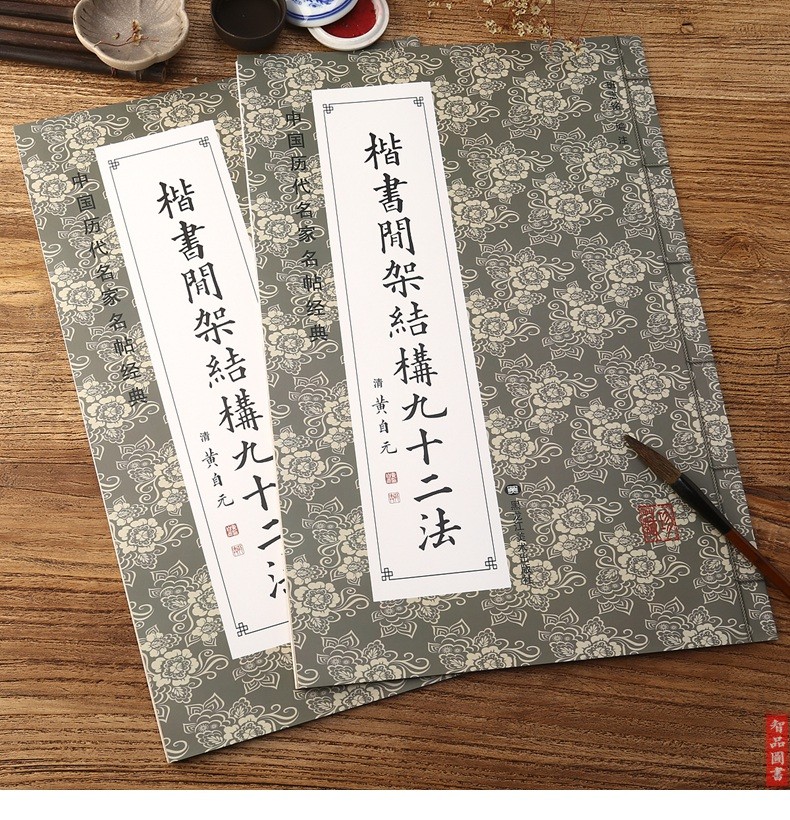 中国历代名家名帖经典
楷書間架結構九十二法
清 黄自元
中国历代名家名帖经典
楷書間架結構九十二法
清 黄自元
黑龙江美术出版社
智品圖書